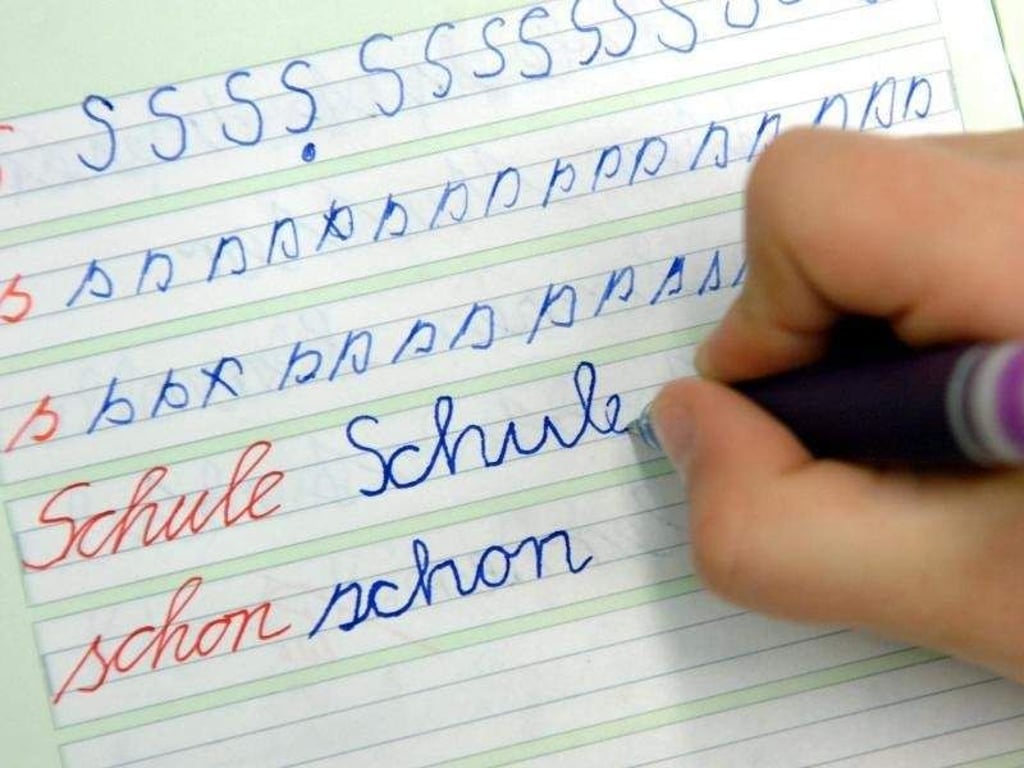 S S S S S S S S S S S
s s s s s s s s s s s s s s s s
s s s s s s s s s s s
Schule Schule
schon schon